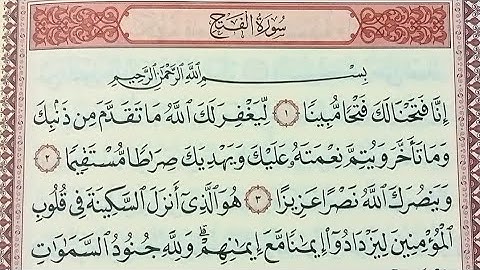 سُورَةُ الفَتْحِ
بِسْمِ اللَّهِ الرَّحْمَٰنِ الرَّحِيمِ
إِنَّا فَتَحْنَا لَكَ فَتْحًا مُّبِينًا ١ لِّيَغْفِرَ لَكَ ٱللَّهُ مَا تَقَدَّمَ مِن ذَنۢبِكَ
وَمَا تَأَخَّرَ وَيُتِمَّ نِعْمَتَهُۥ عَلَيْكَ وَيَهْدِيَكَ صِرَٰطًا مُّسْتَقِيمًا ٢
وَيَنصُرَكَ ٱللَّهُ نَصْرًا عَزِيزًا ٣ هُوَ ٱلَّذِىٓ أَنزَلَ ٱلسَّكِينَةَ فِى قُلُوبِ
ٱلْمُؤْمِنِينَ لِيَزْدَادُوٓا۟ إِيمَٰنًا مَّعَ إِيمَٰنِهِمْ ۗ وَلِلَّهِ جُنُودُ ٱلسَّمَٰوَٰتِ